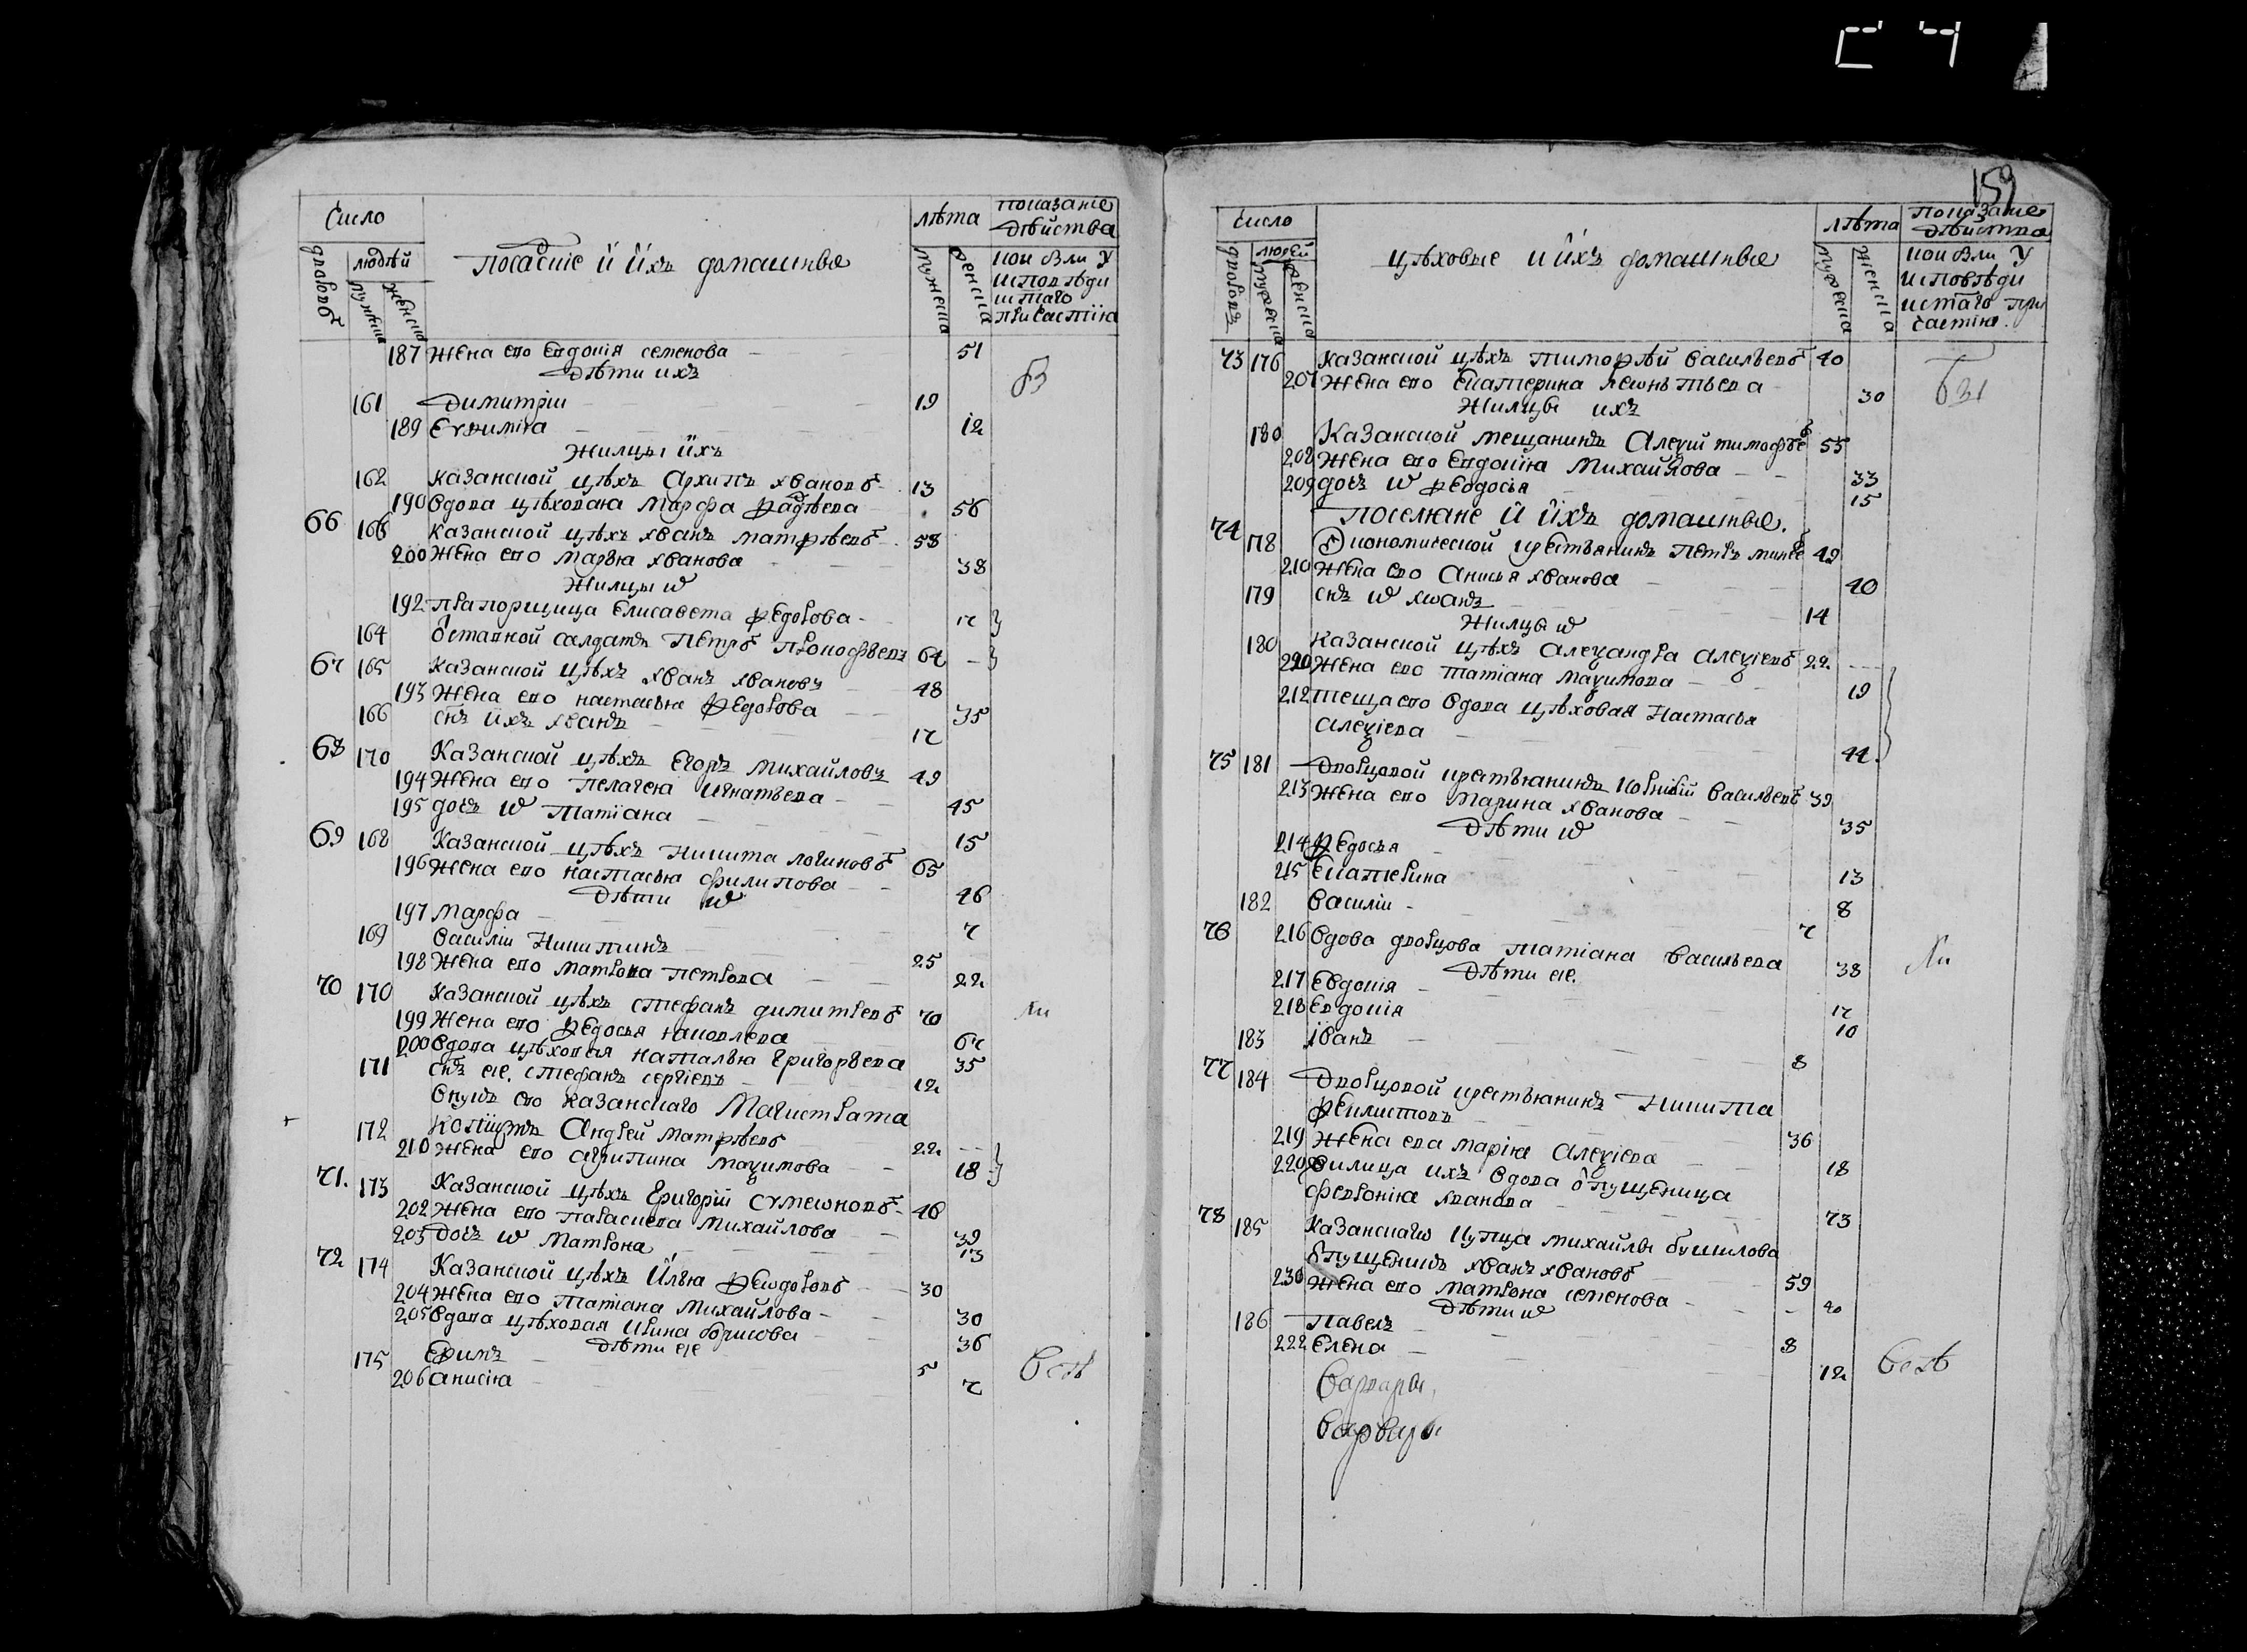 159
Число
лѣта
показаніе
дѣйства
дворовъ
людѣй
Посадскіе и ихъ домашнѣе
мужеска
женска
кои были у
исповѣди
и стаго
причастїѧ
187 Жена ево Евдокїя семенова 51
Дѣти ихъ
161 Димитрїи 19
189 Еѵѳимїѧ 12
Жилцы ихъ
162 Казанской цѣхъ Архипъ Ивановъ 13
190 Вдова цѣховаѧ Марфа Фадѣева 56
66 166 Казанской цѣхъ Иванъ Матфѣевъ 58
200 Жена ево Марья Иванова 38
Жилцы ѿ
192 Прапорщица Елисавета Федорова
164 Ѿставной салдатъ Петръ Прокофьевъ 64
67 165 Казанской цѣхъ Иванъ Ивановъ 48
193 Жена ево Настасья Федорова 35
166 снъ ихъ Иванъ 17
68 170 Казанской цѣхъ Егоръ Михайловъ 49
194 Жена ево Пелагеѧ Игнатьева 45
195 дочь ѿ Татїана 15
69 168 Казанской цѣхъ Никита Логиновъ 65
196 Жена ево Настасья Филипова 46
Дѣти ѿ
197 Марфа 7
169 Василїи Никитинъ 25
198 Жена ево Матрона Петрова 22
70 170 Казанской цѣхъ Стефанъ Димитревъ 70
199 Жена ево Федосья Яковлева 67
200 Вдова цѣховая Наталья Григорьева 35
171 снъ ее Стефанъ Сергїевъ 12
Внукъ ево Казанскаго Магистрата
172 Копїистъ Андрей Матфѣевъ 22
210 Жена ево Агрипина Маѯимова 18
71. 173 Казанской цѣхъ Григорїй Сѵмеѡновъ 46
202 Жена ево Параскева Михайлова 39
203 дочь ѿ Матрона 13
72 174 Казанской цѣхъ Илья Феѡдоровъ 30
204 Жена ево Татїана Михайлова 30
205 Вдова цѣховая Ирина Борисова 36
Дѣти ее
175 Ефимъ 5
206 Анисїѧ 7
Число
лѣта
показанїе
дѣйства
дворовъ
людей
цѣховые и ихъ домашнѣе
мужеска
женска
кои были у
исповѣди
и стаго при
частїѧ.
73 176 Казанской цѣхъ Тимофѣй Васильевъ 40
207 Жена ево Екатерина Леонтьева 30
Жилцы ихъ
180 Казанской мещанинъ Алеѯїй Тимофѣевъ 55
208 Жена ево Евдокїѧ Михайлова 33
209 дочь ѿ Феодосья 15
Поселѧне и ихъ домашнѣе.
74 178 Экономической крестьянинъ Петръ 42
210 Жена ево Анисья Иванова 40
179 снъ ѿ Иванъ 14
Жилцы ѿ
180 Казанской цѣхъ Алеѯандра Алеѯїевъ 22
220 Жена ево Татїана Маѯимова 19
212 Теща ево Вдова цѣховая Настасья
Алеѯїева 44
75 181 Дворцовой крестьянинъ Корнилїй Васильевъ 39
213 Жена ево Марина Иванова 35
Дѣти ѿ
214 Федосья 13
215 Екатерина 8
182 Василїи 7
76 216 Вдова дворцова Татїана Васильева 38
Дѣти ее.
217 Евдокїя 17
218 Евдокїя 10
183 Иванъ 8
77 184 Дворцовой крестьянинъ Никита
Феилистовъ 36
219 Жена ева Марїѧ Алеѯїева 18
220 Жилица ихъ Вдова ѿпущеница
Феврониѧ Иванова 73
78 185 Казанскагѡ купца Михайлы Бушилова
ѿпущеникъ Иванъ Ивановъ 59
230 Жена ево Матрона Семенова 40
Дѣти ѿ
186 Павелъ 8
222 Елена 12
Варвары
Варвары